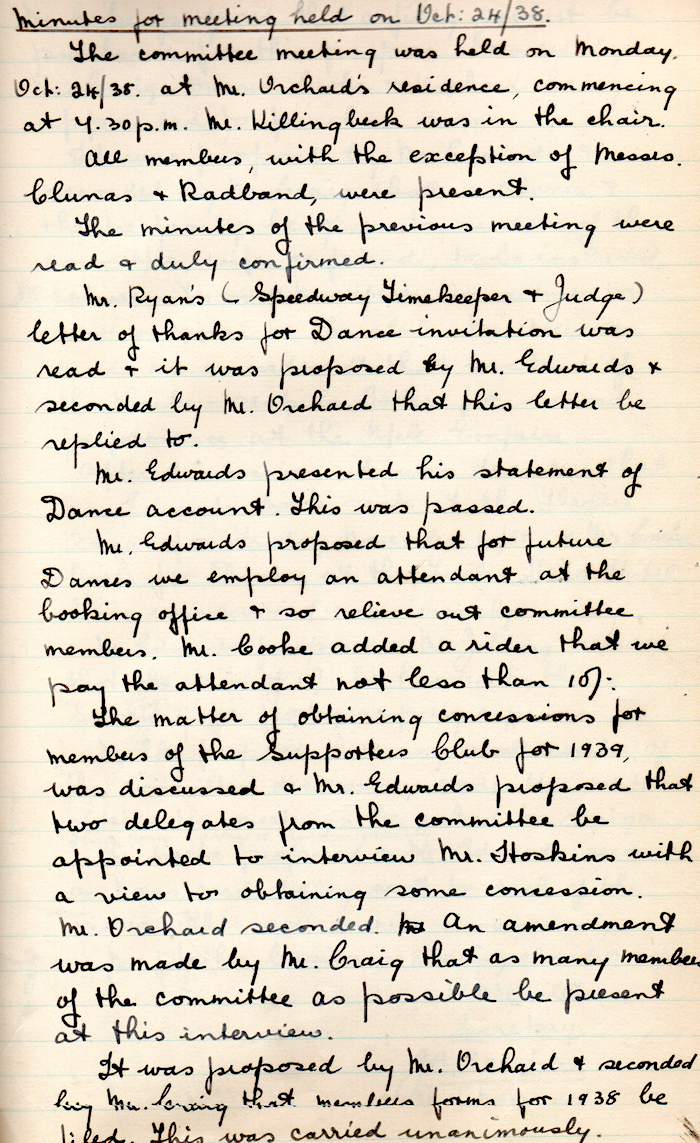 Minutes for meeting held on Oct: 24/38.
The committee meeting was held on Monday,
Oct: 24/38. at Mr. Orchard's residence, commencing
at 7.30p.m. Mr. Killingbeck was in the chair.
All members, with the exception of Messrs.
Clunas & Radband, were present.
The minutes of the previous meeting were
read & duly confirmed.
Mr. Ryan's (Speedway Timekeeper & Judge)
letter of thanks for Dance invitation was
read & it was proposed by Mr. Edwards &
seconded by Mr. Orchard that this letter be
replied to.
Mr. Edwards presented his statement of
Dance account. This was passed.
Mr. Edwards proposed that for future
Dances we employ an attendant at the
booking office & so relieve out committee
members. Mr. Cooke added a rider that we
pay the attendant not less than 10/-.
The matter of obtaining concessions for
members of the Supporters Club for 1939,
was discussed & Mr. Edwards proposed that
two delegates from the committee be
appointed to interview Mr. Hoskins with
a view to obtaining some concession.
Mr. Orchard seconded. An amendment
was made by Mr. Craig that as many members
of the committee as possible be present
at this interview.
It was proposed by Mr. Orchard & seconded
by Mr. Craig that members forms for 1938 be
filed. This was carried unanimously.